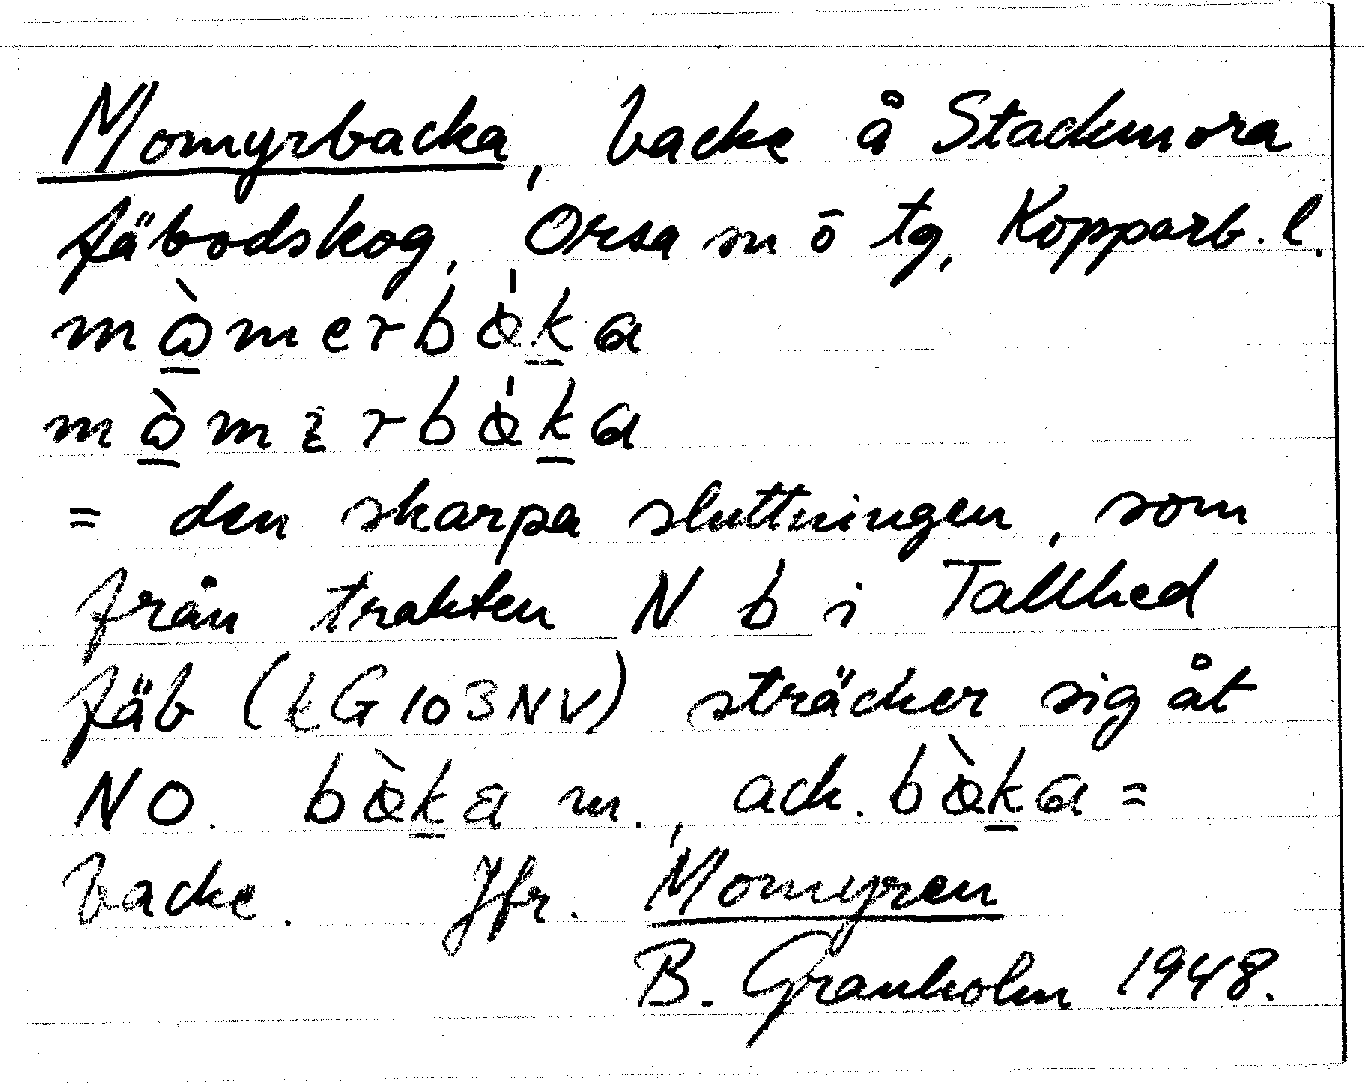 Momyrbacka, backe å Stackmora
fäbodskog, Orsa sn o tg, Kopparb. l.
mò̱merbáḵa
mò̱mırbáḵa
= den skarpa sluttningen, som
från trakten N b i Tallhed
fäb (kG103NV) sträcker sig åt
NO. bàḵa m., ack. bàḵa =
backe. Jfr. Momyren
B. Granholm 1948.